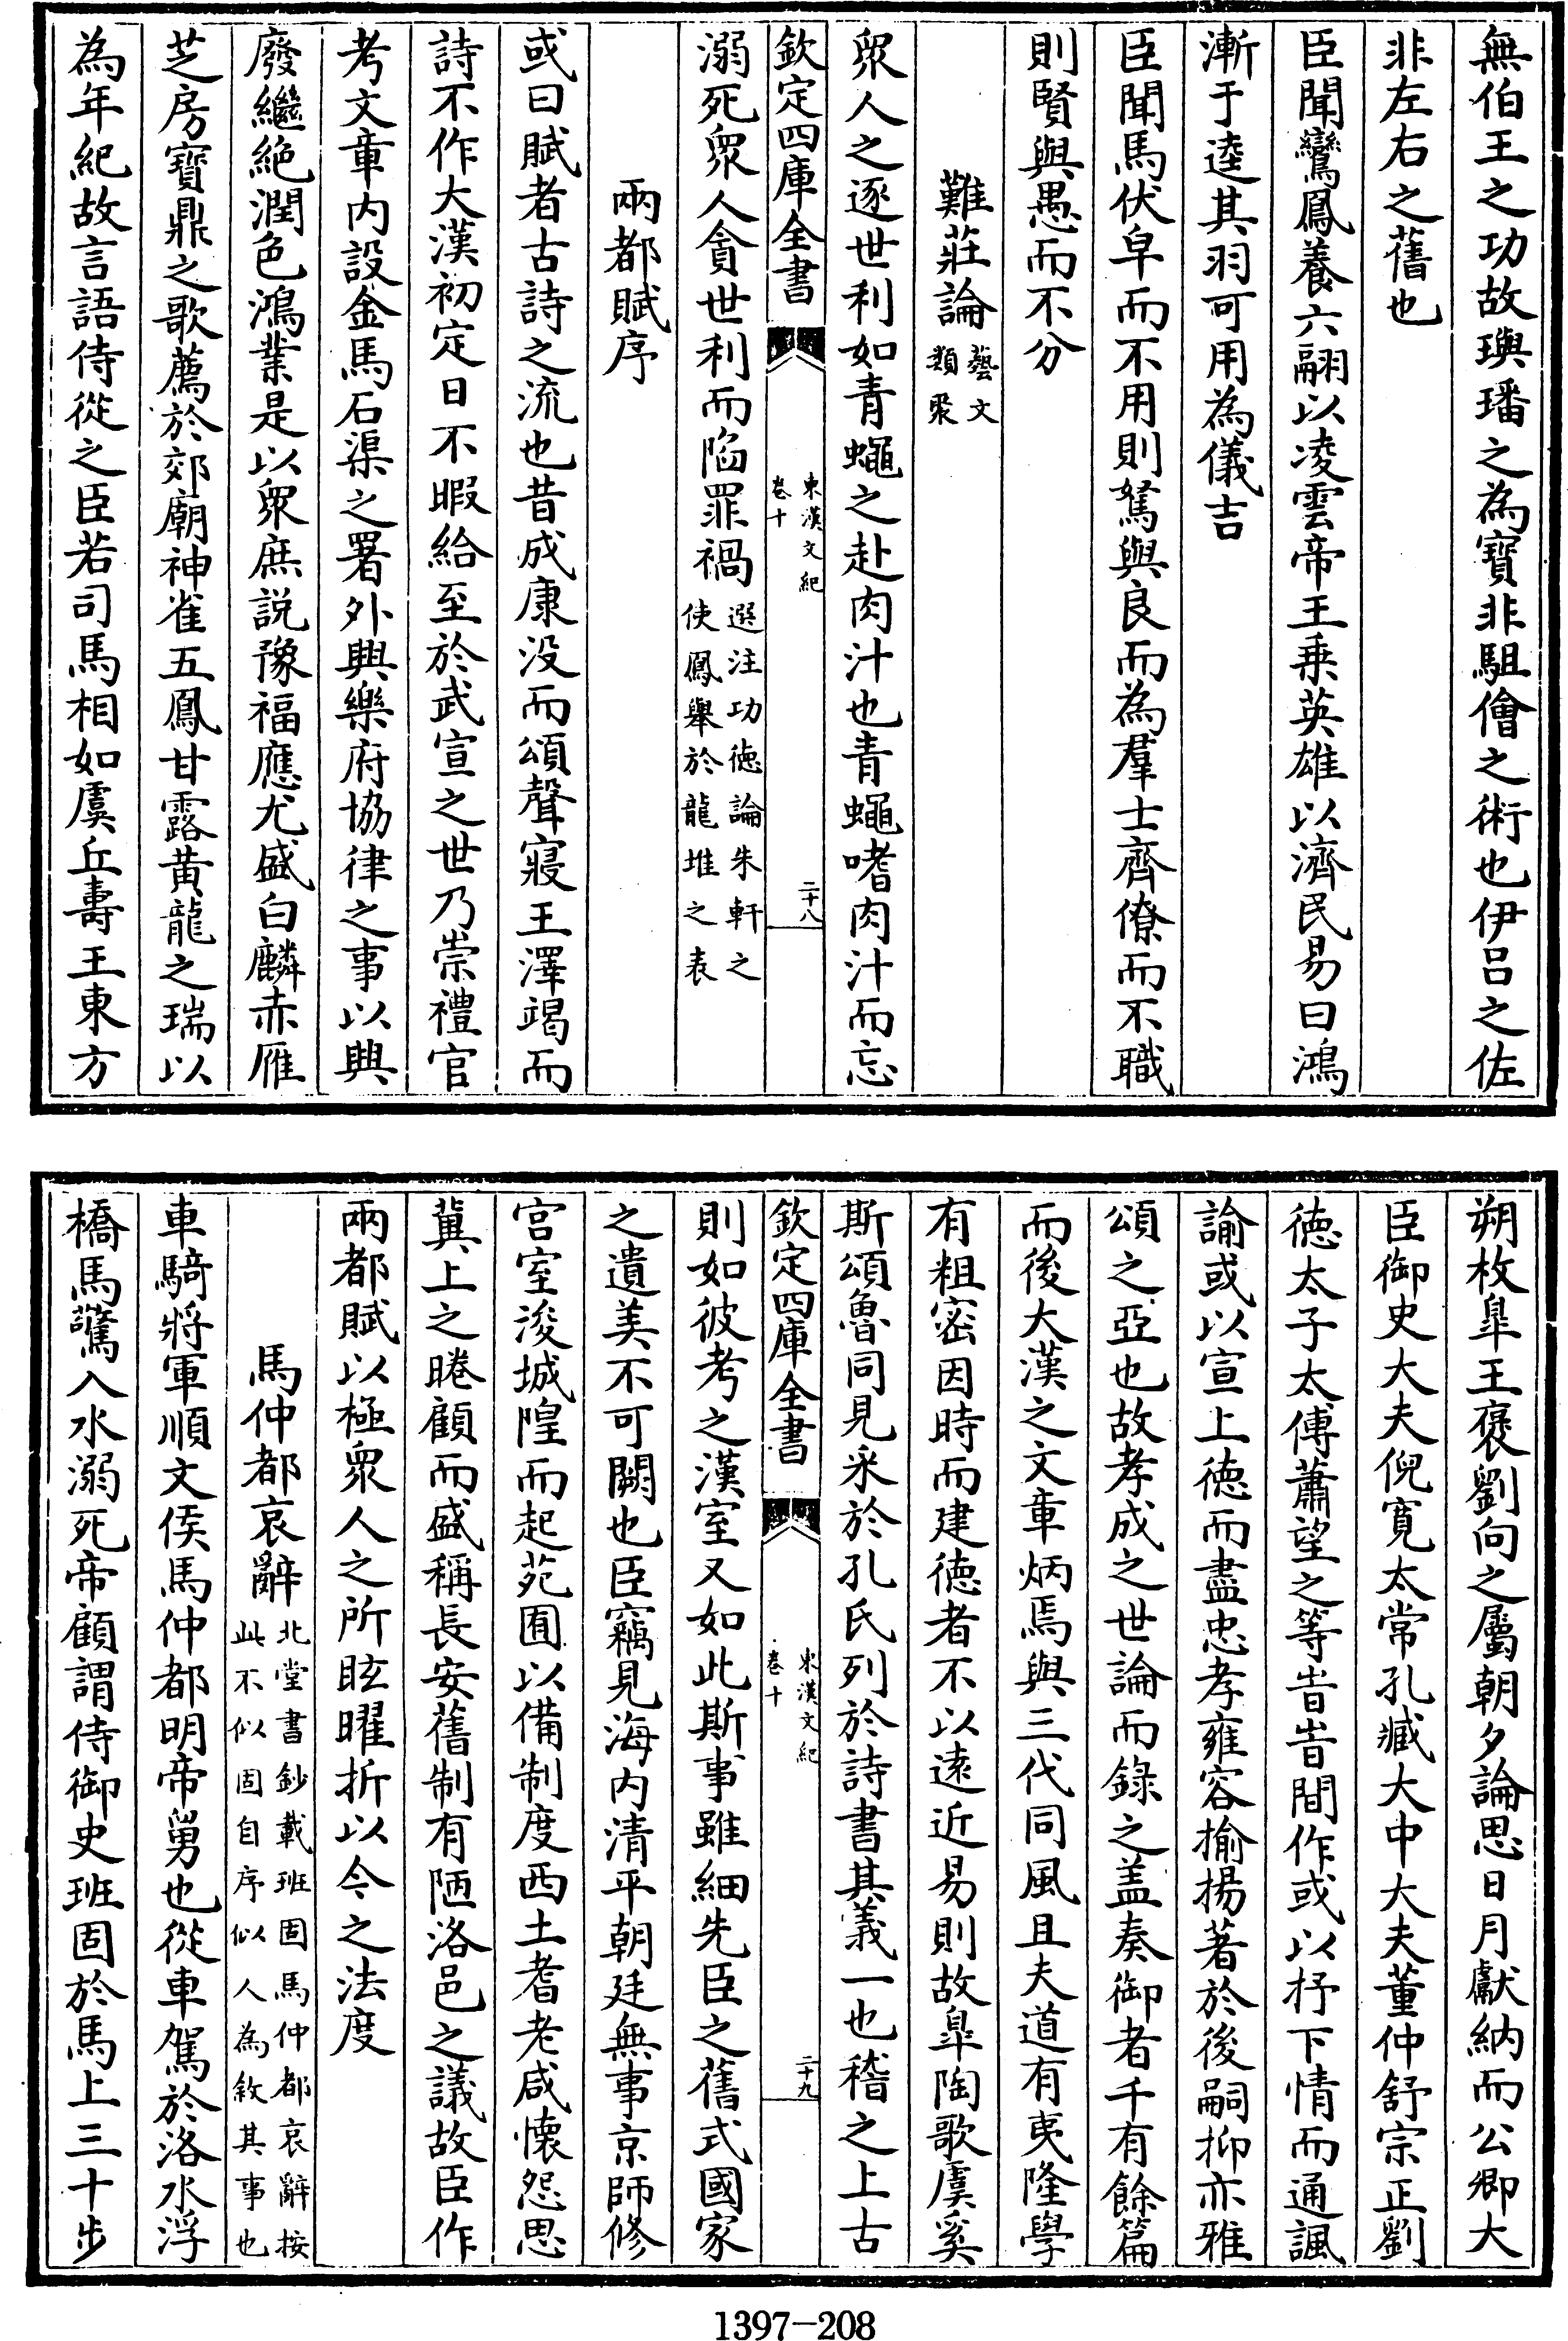 無伯王之功故璵璠之為寶非駔儈之術也伊呂之佐
非左右之舊也
臣聞鸞鳳養六翮以凌雲帝王乗英雄以濟民易曰鴻
漸于逵其羽可用為儀吉
臣聞馬伏皁而不用則駑與良而為羣士齊僚而不職
則賢與愚而不分
難莊論藝文
類聚
衆人之逐世利如青蠅之赴肉汁也青蠅嗜肉汁而忘
欽定四庫全書
東漢文紀
卷十
二十八
溺死衆人貪世利而陷罪禍選注功徳論朱軒之
使鳳舉於龍堆之表
兩都賦序
或曰賦者古詩之流也昔成康没而頌聲寢王澤竭而
詩不作大漢初定日不暇給至於武宣之世乃崇禮官
考文章内設金馬石渠之署外興樂府協律之事以興
廢繼絶潤色鴻業是以衆庶説豫福應尤盛白麟赤雁
芝房寶鼎之歌薦於郊廟神雀五鳳甘露黄龍之瑞以
為年紀故言語侍從之臣若司馬相如虞丘壽王東方
朔枚臯王褒劉向之屬朝夕論思日月獻納而公卿大
臣御史大夫倪寛太常孔臧大中大夫董仲舒宗正劉
徳太子太傅蕭望之等皆皆間作或以抒下情而通諷
諭或以宣上徳而盡忠孝雍容揄揚著於後嗣抑亦雅
頌之亞也故孝成之世論而錄之盖奏御者千有餘篇
而後大漢之文章炳焉與三代同風且夫道有夷隆學
有粗密因時而建徳者不以遠近易則故臯陶歌虞奚
斯頌魯同見采於孔氏列於詩書其義一也稽之上古
欽定四庫全書
東漢文紀
卷十
二十九
則如彼考之漢室又如此斯事雖細先臣之舊式國家
之遺美不可闕也臣竊見海内清平朝廷無事京師修
宫室浚城隍而起苑囿以備制度西土耆老咸懷怨思
冀上之睠顧而盛稱長安舊制有陋洛邑之議故臣作
兩都賦以極衆人之所眩曜折以今之法度
馬仲都哀辭北堂書鈔載班固馬仲都哀辭按
此不似固自序似人為敘其事也
車騎將軍順文侯馬仲都明帝舅也從車駕於洛水浮
橋馬驚入水溺死帝顧謂侍御史班固於馬上三十步
1397-208